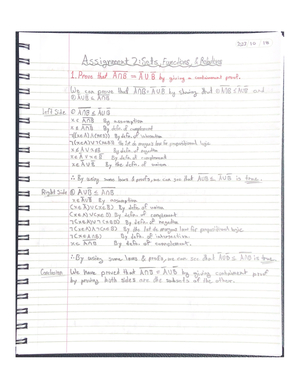 Assignment 2: Sets, Functions, & Relations
1. Prove that A̅∩̅B̅ = A̅ ∪ B̅ by giving a containment proof.
We can prove that A̅∩̅B̅ = A̅∪B̅ by showing that ① A̅∩̅B̅ ⊆ A̅∪B̅ and
② A̅∪B̅ ⊆ A̅∩̅B̅
Left Side ① A̅∩̅B̅ ⊆ A̅∪B̅
x ∈ A̅∩̅B̅ By assumption
x ∉ A∩B By defn. of complement
By defn. of intersection
By the 1st de morgans law for propositional logic
By defn. of negation
By defn. of complement
x ∈ A̅∪B̅ By the defn. of union
∴ By using same laws & proofs, we can see that A̅∩̅B̅ ⊆ A̅∪B̅ is true.
Right Side ② A̅∪B̅ ⊆ A̅∩̅B̅
x ∈ A̅∪B̅ By assumption
(x ∈ A̅) ∨ (x ∈ B̅) By defn. of union
(x ∉ A) ∨ (x ∉ B) By defn. of complement
¬(x ∈ A) ∨ ¬(x ∈ B) By defn. of negation
By the 1st de morgans law for propositional logic
By defn. of intersection
x ∈ A̅∩̅B̅ By defn. of complement.
∴ By using same laws & proofs, we can see that A̅∪B̅ ⊆ A̅∩̅B̅ is true.
Conclusion We have proved that A̅∩̅B̅ = A̅∪B̅ by giving containment proof
by proving both sides are the subsets of the others.